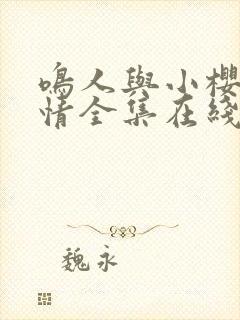 鳴人與小櫻
情全集在綫
魏永